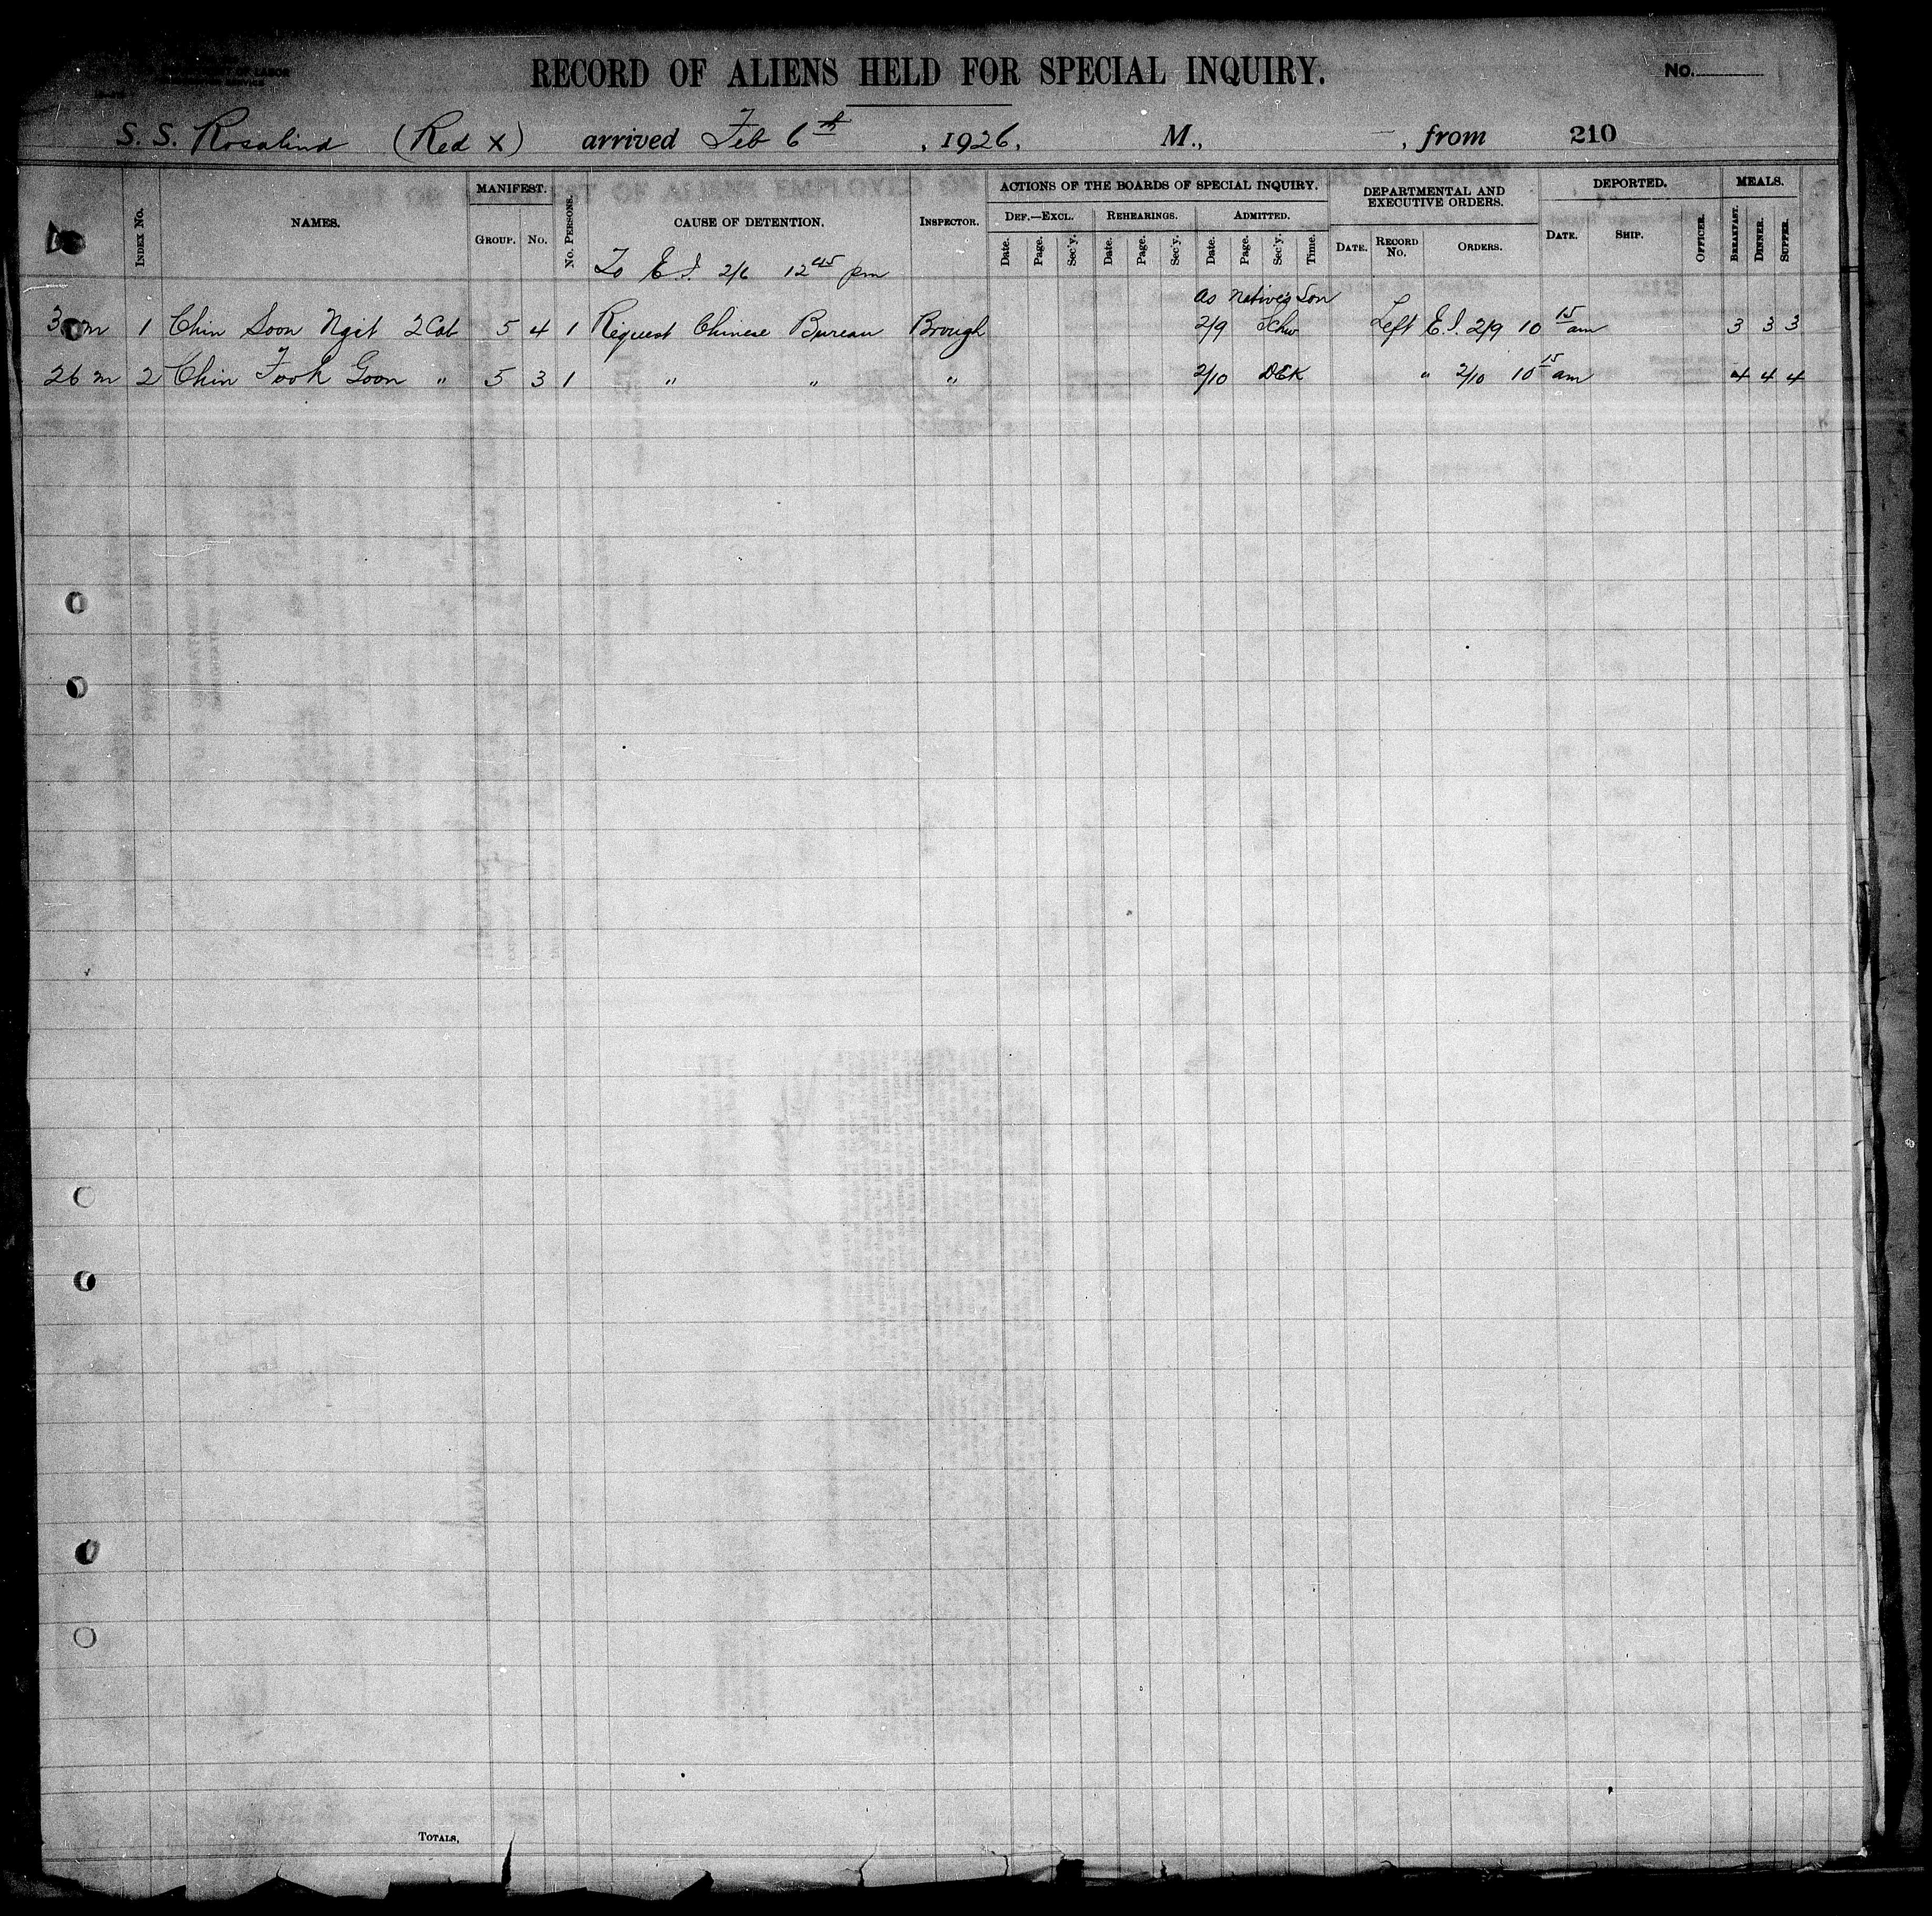 RECORD OF ALIENS HELD FOR SPECIAL INQUIRY.
No.
S. S. Rosalind (Red X) arrived Feb 6th, 1926, M., , from 210
INDEX No. NAMES. MANIFEST. GROUP. No. No. PERSONS. CAUSE OF DETENTION. INSPECTOR. ACTIONS OF THE BOARDS OF SPECIAL INQUIRY. DEF.—EXCL. Date. Page. Sec'y. REHEARINGS. Date. Page. Sec'y. ADMITTED. Date. Page. Sec'y. Time. DEPARTMENTAL AND EXECUTIVE ORDERS. DATE. RECORD No. ORDERS. DEPORTED. DATE. SHIP. OFFICER. MEALS. BREAKFAST. DINNER. SUPPER.
To E. I. 2/6 12 45 pm
as Native's Son
m 1 Chin Soon Ngit 2 Cab 5 4 1 Request Chinese Bureau Brough 2/9 Schw Left E. I. 2/9 10 15 am 3 3 3
26 m 2 Chin Fook Goon " 5 3 1 " " " 2/10 DEK " 2/10 10 15 am 4 4 4
TOTALS,